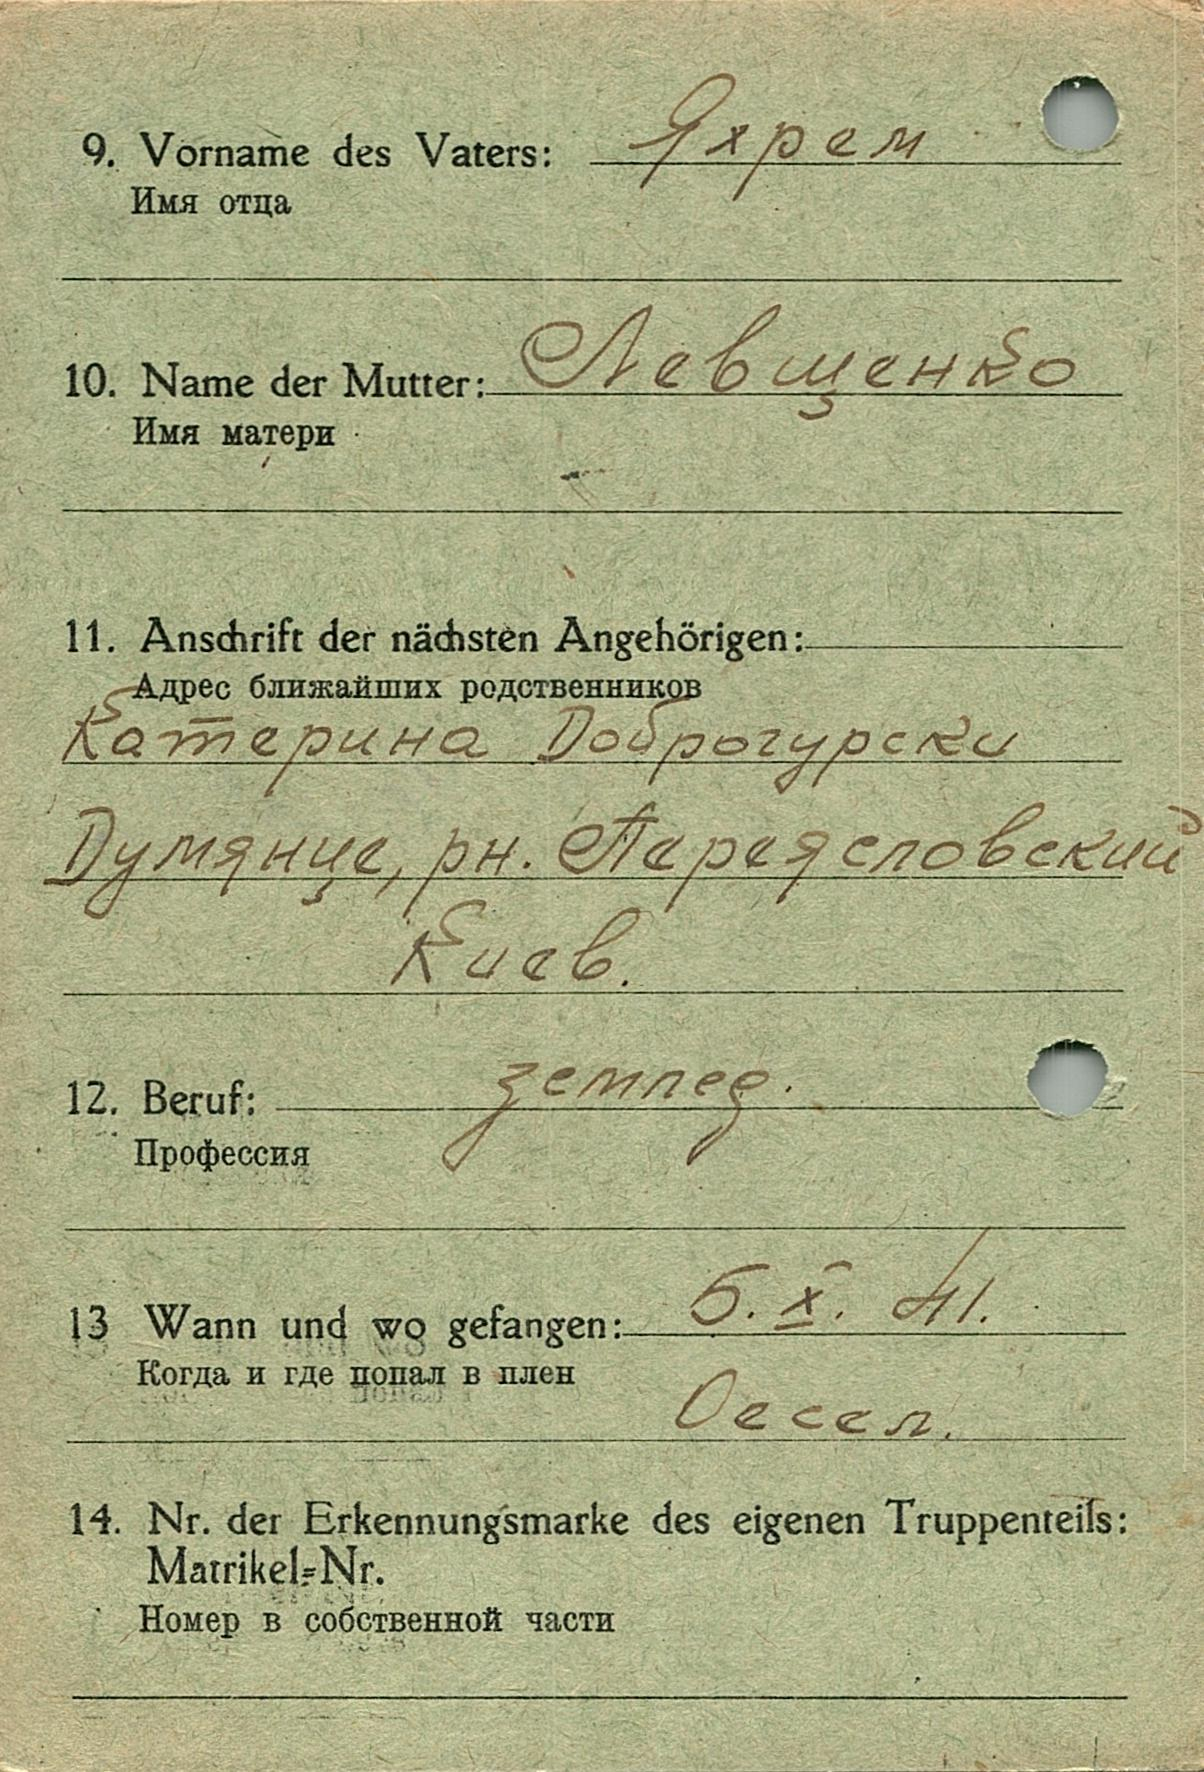 9. Vorname des Vaters: Яхрем
Имя отца
10. Name der Mutter: Левщенко
Имя матери
11. Anschrift der nächsten Angehörigen:
Адрес ближайших родственников
Катерина Доброгурски
Думянце, рн. Переясловский
Киев.
12. Beruf: землед.
Профессия
13 Wann und wo gefangen: 5. X. 41.
Когда и где попал в плен
Оесел.
14. Nr. der Erkennungsmarke des eigenen Truppenteils:
Matrikel-Nr.
Номер в собственной части